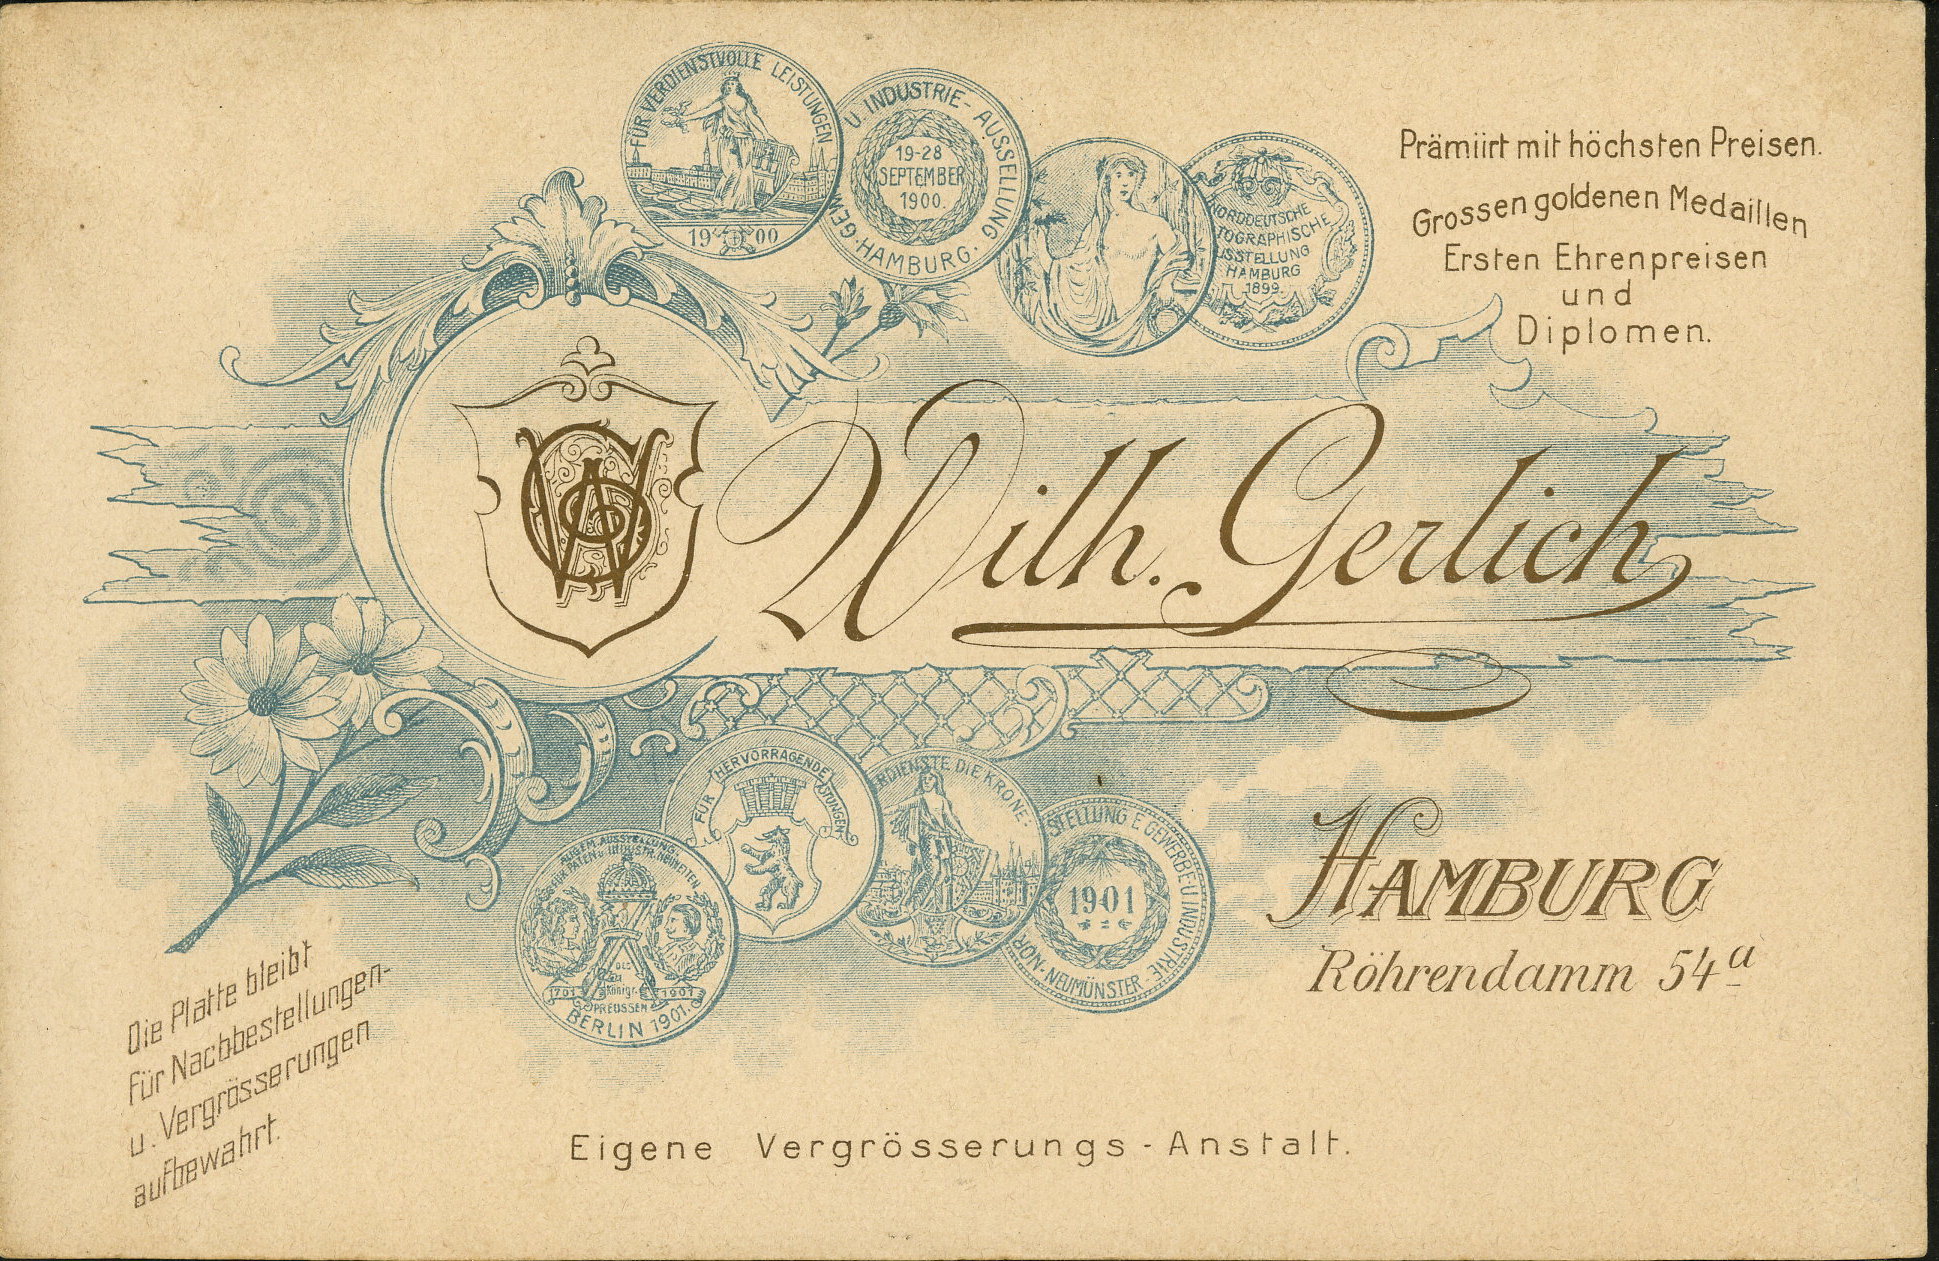 FÜR VERDIENSTVOLLE LEISTUNGEN
1900
U. INDUSTRIE-AUSSELLUNG
GEW
HAMBURG.
19-28
SEPTEMBER
1900.
NORDDEUTSCHE
TOGRAPHISCHE
USSTELLUNG
HAMBURG
1899.
Prämiirt mit höchsten Preisen.
Grossen goldenen Medaillen
Ersten Ehrenpreisen
und
Diplomen.
WG
Wilh. Gerlich
FÜR HERVORRAGENDE
STUNGEN
RDIENSTE DIE KRONE:
STELLUNG F. GEWERBE U INDUSTRIE
NOR-NEUMÜNSTER
1901
ALLGEM. AUSSTELLUNG
NEUHEITEN
1701
Königr.
1901
PREUSSEN
BERLIN 1901.
HAMBURG
Röhrendamm 54a
Die Platte bleibt
für Nachbestellungen-
u. Vergrösserungen
aufbewahrt.
Eigene Vergrösserungs-Anstalt.